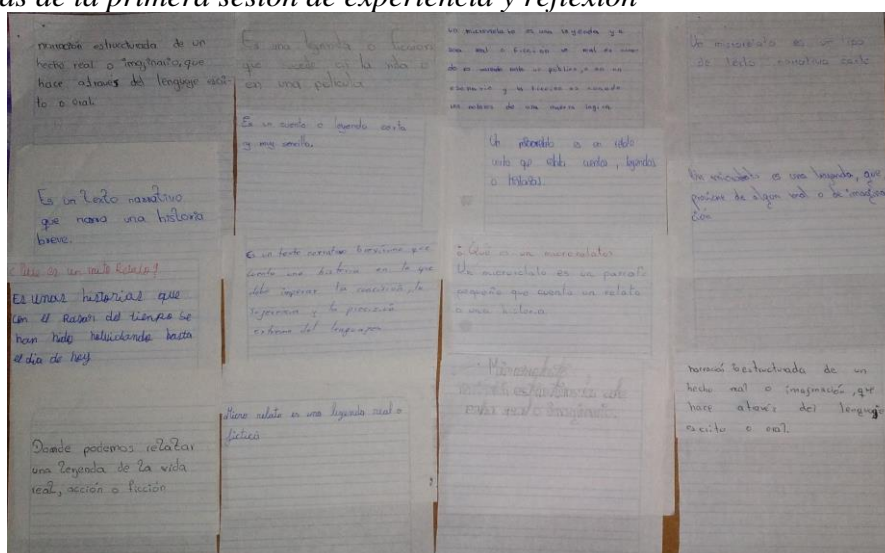 as de la primera sesión de experiencia y reflexión
narración estructurada de un
hecho real o imaginario, que
hace através del lenguaje escri-
to o oral.
Es un texto narrativo
que narra una historia
breve.
¿Que es un micro Relato?
Es unas historias que
con el Pasar del tiempo se
han hido
el dia de hoy
Donde podemos relatar
una leyenda de la vida
real, acción o ficción
Es una leyenda o
que sucede en la vida o
en una película
Es un cuento o leyenda corta
y muy sencilla.
Es un texto narrativo brevísimo que
cuenta una historia en la que
debe imperar la concisión, la
y la precisión
extrema del lenguaje.
Micro relato es una leyenda real o
ficticia
un microrelato es una leyenda
real o ficcion
un publico, o en un
escenario y la ficcion es cuando
Un microrelato es un relato
corto que cuentos, leyendas
o historias.
¿Qué es un microrrelato?
Un microrelato es un
pequeño que cuenta un relato
o una historia.
Microrrelato
real o imaginario
Un microrelato es un tipo
de texto narrativo corto
Un microrelato es una leyenda, que
proviene de algun real o de imagina
ción
narración estructurada de un
hecho real o imaginación, que
hace através del lenguaje
escrito o oral.